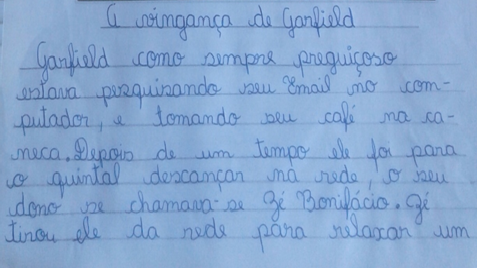 A vingança de Garfield
Garfield como sempre preguiçoso
estava pezquisando seu Email no com-
putador, e tomando seu café na ca-
neca. Depois de um tempo ele foi para
o quintal descançar na rede, o seu
dono se chamava-se Zé Bonifácio. Zé
tirou ele da rede para relaxar um